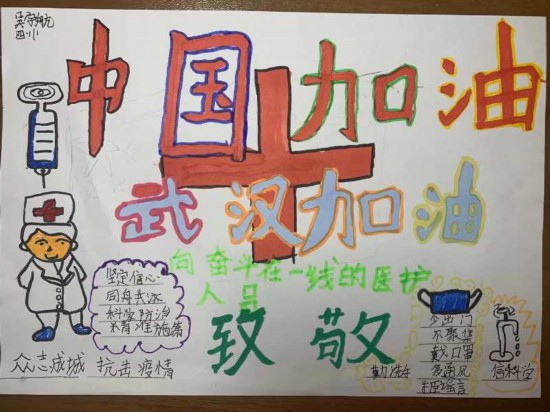 吴宇航
四小
中国加油
武汉加油
向奋斗在一线的医护
人员
致敬
坚定信心
同舟共济
科学防治
精准施策
众志成城 抗击疫情
少出门
不聚集
戴口罩
多通风
勤洗手
不信谣言
信科学